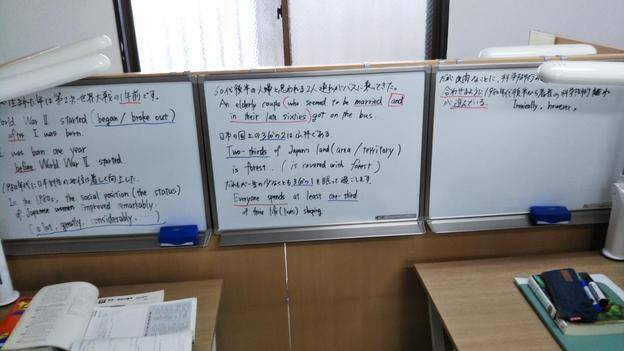 生まれた年は第2次世界大戦の1年前です。
World War II started (began / broke out)
after I was born.
I was born one year
before World War II started.
1980年代に日本女性の地位は著しく向上した。
In the 1980s, the social position (the status)
of Japanese women improved remarkably.
(a lot, greatly, considerably, ....)
60代後半の夫婦と思われる2人連れがバスに乗ってきた。
An elderly couple (who seemed to be married and
in their late sixties) got on the bus.
日本の国土の3分の2は森林である。
Two-thirds of Japan's land (area / territory)
is forest. (is covered with forest)
だれもが一生の少なくとも3分の1を眠って過ごします。
Everyone spends at least one-third
of their life (lives) sleeping.
だが皮肉なことに、科学技術の
合わせるように1980年代後半から
Ironically, however,